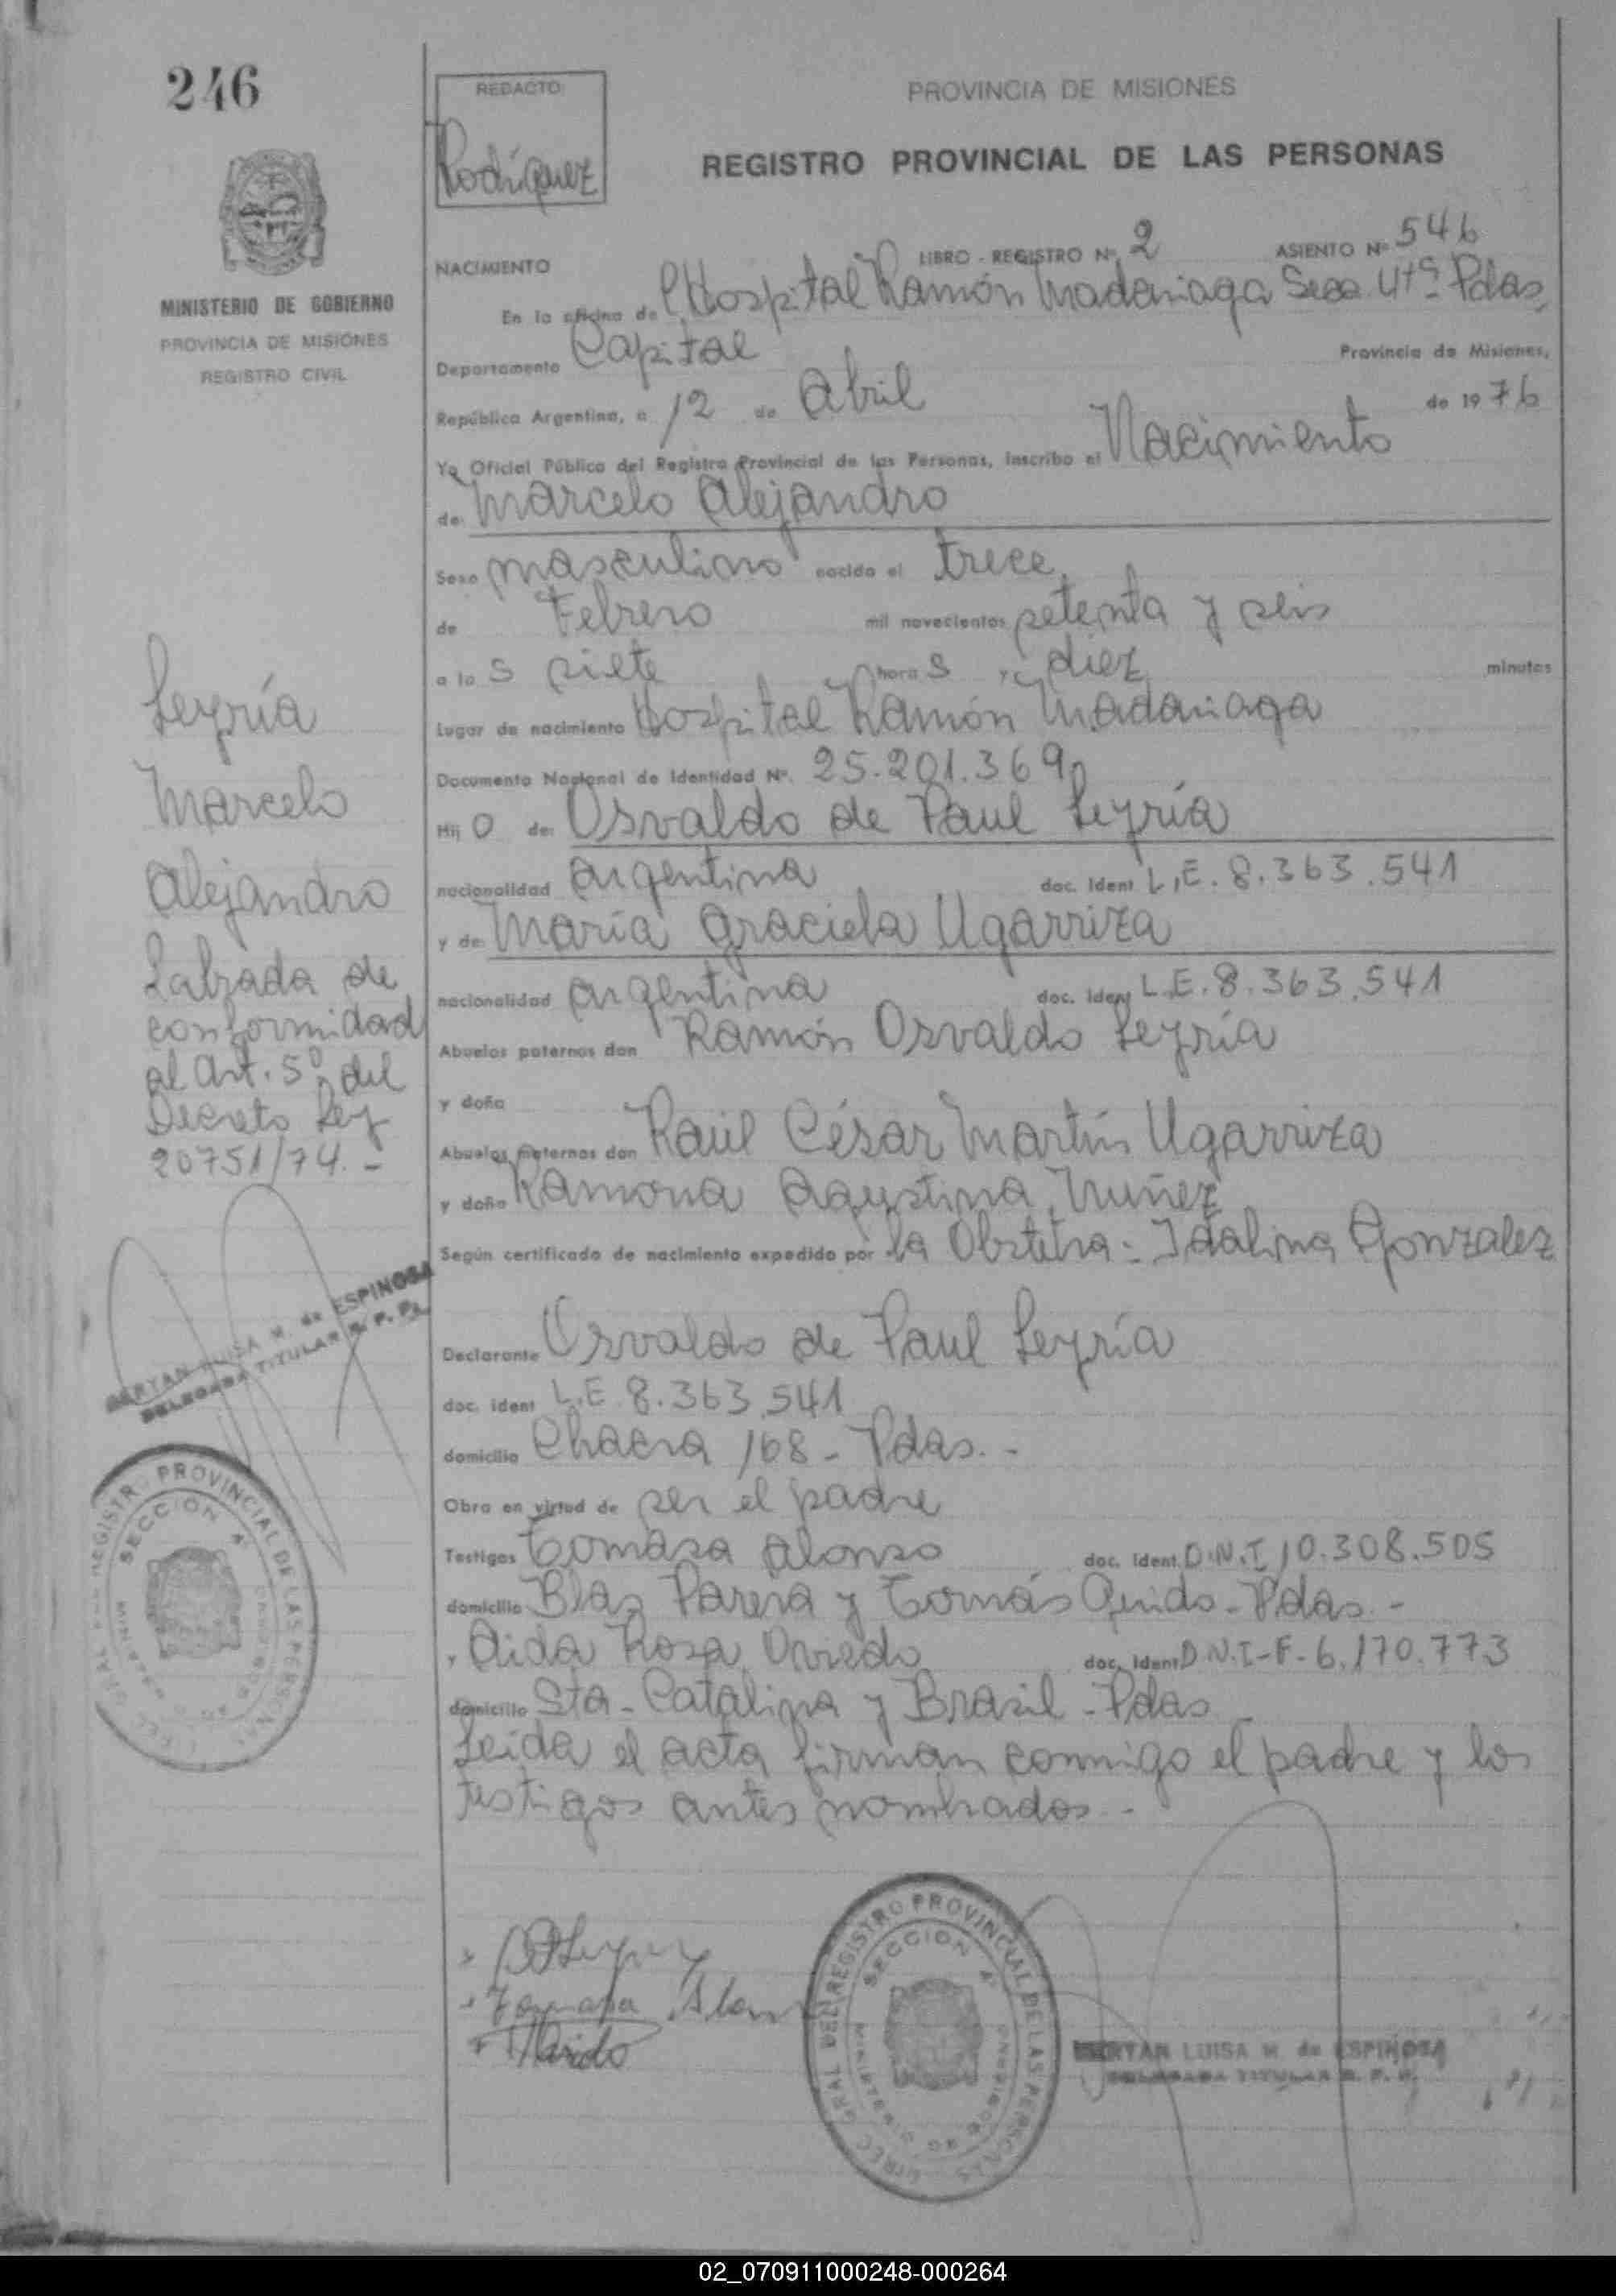 246
REDACTO
Rodríguez
PROVINCIA DE MISIONES
REGISTRO PROVINCIAL DE LAS PERSONAS
MINISTERIO DE GOBIERNO
PROVINCIA DE MISIONES
REGISTRO CIVIL
NACIMIENTO LIBRO - REGISTRO Nº 2 ASIENTO Nº 546
En la oficina de Hospital Ramón Madariaga Secc 4tª Pdas,
Departamento Capital Provincia de Misiones,
República Argentina, a 12 de Abril de 1976
Yo Oficial Público del Registro Provincial de las Personas, inscribo el Nacimiento
de Marcelo Alejandro
Sexo masculino nacido el trece
de Febrero mil novecientos setenta y seis
a las siete horas y diez minutos
Lugar de nacimiento Hospital Ramón Madariaga
Documento Nacional de Identidad Nº. 25.201.369
Hijo de: Osvaldo de Paul Leyría
nacionalidad argentina doc. Ident L.E. 8.363.541
y de María Graciela Ugarriza
nacionalidad argentina doc. Iden L.E. 8.363.541
Abuelos paternos don Ramón Osvaldo Leyría
y doña
Abuelos maternos don Raúl César Martín Ugarriza
y doña Ramona Agustina Nuñez
Según certificado de nacimiento expedido por la Obstetra - Idalina Gonzalez
Declarante Osvaldo de Paul Leyría
doc. ident L.E 8.363.541
domicilio Chacra 168 - Pdas. -
Obra en virtud de ser el padre
Testigos Tomasa Alonso doc. Ident. D.N.I 10.308.505
domicilio Blas Parera y Tomás Guido - Pdas. -
y Aida Rosa Oviedo doc. Ident D.N.I-F- 6.170.773
domicilio Sta - Catalina y Brasil - Pdas
Leida el acta firman conmigo el padre y los
testigos antes nombrados. -
Leyría
Marcelo
Alejandro
Labrada de
conformidad
al Art. 5º del
Decreto Ley
20751/74. -
BERTAN LUISA M. de ESPINOSA
DELEGADA TITULAR R. P. P.
REGISTRO PROVINCIAL DE LAS PERSONAS
SECCION 4ª
Tomasa Alon
DIREC. GRAL. DEL REGISTRO PROVINCIAL DE LAS PERSONAS
SECCION 4ª
MINISTERIO DE GOBIERNO
LUISA M. de ESPINOSA
DELEGADA TITULAR R. P. P.
02_070911000248-000264